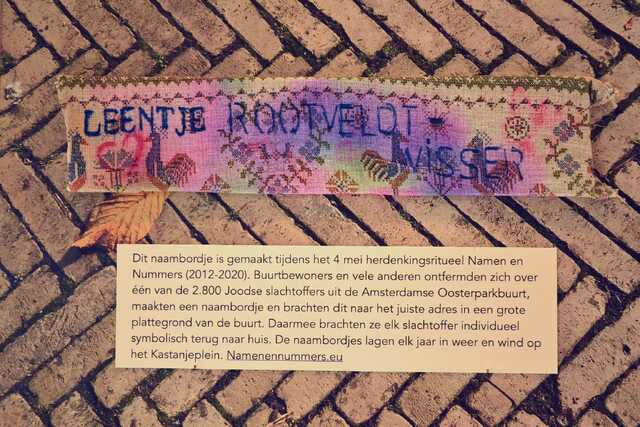 LEENTJE ROOTVELDT-
VISSER
Dit naambordje is gemaakt tijdens het 4 mei herdenkingsritueel Namen en
Nummers (2012-2020). Buurtbewoners en vele anderen ontfermden zich over
één van de 2.800 Joodse slachtoffers uit de Amsterdamse Oosterparkbuurt,
maakten een naambordje en brachten dit naar het juiste adres in een grote
plattegrond van de buurt. Daarmee brachten ze elk slachtoffer individueel
symbolisch terug naar huis. De naambordjes lagen elk jaar in weer en wind op
het Kastanjeplein. Namenennummers.eu